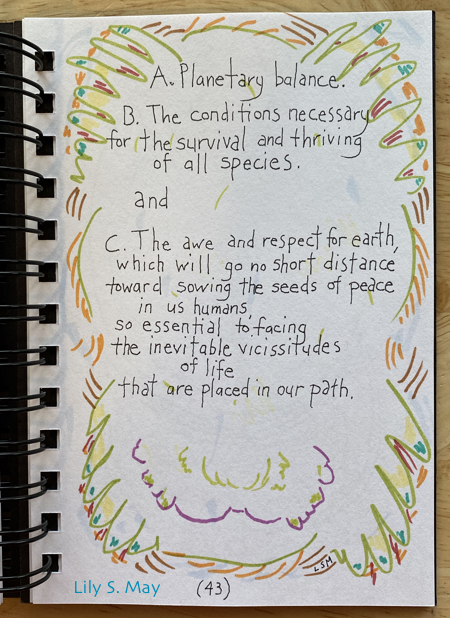 A. Planetary balance.
B. The conditions necessary
for the survival and thriving
of all species.
and
C. The awe and respect for earth,
which will go no short distance
toward sowing the seeds of peace
in us humans,
so essential to facing
the inevitable vicissitudes
of life
that are placed in our path.
LSM
Lily S. May (43)